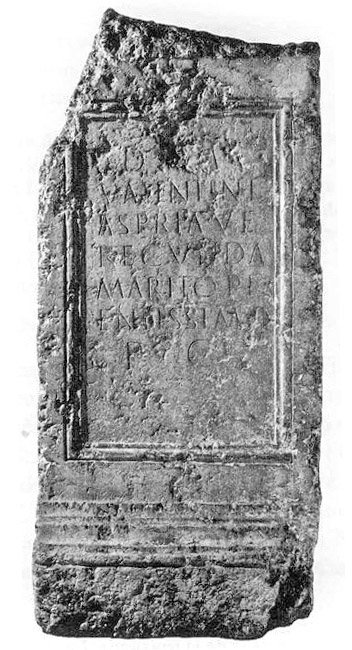 D M
VALENTINI
ASPRIA VE
RECVNDA
MARITO PI
ENTISSIMO